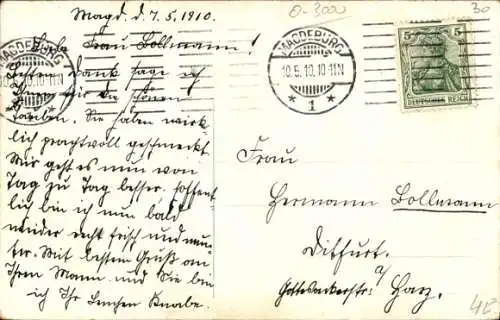 Magd. d. 7.5.1910.
Liebe Frau Bollmann!
Besten Dank sage ich
Ihnen für die schönen
Tauben. Sie haben wirk-
lich prachtvoll geschmeckt.
Mir geht es nun von
Tag zu Tag besser, hoffent-
lich bin ich nun bald
wieder recht frisch und mun-
ter. Mit bestem Gruß an
Ihren Mann und Sie bin
ich Ihr Lenchen Knabe.
MAGDEBURG
10.5.10.10-11N
* 1 *
5 5
DEUTSCHES REICH
Frau
Hermann Bollmann
Ditfurt.
Gottesackerstr. a/ Harz.